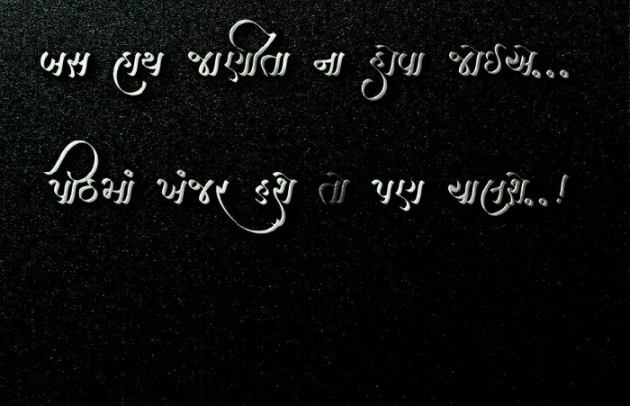 બસ હાથ જાણીતા ના હોવા જોઈએ...
પીઠમાં ખંજર હશે તો પણ ચાલશે..!